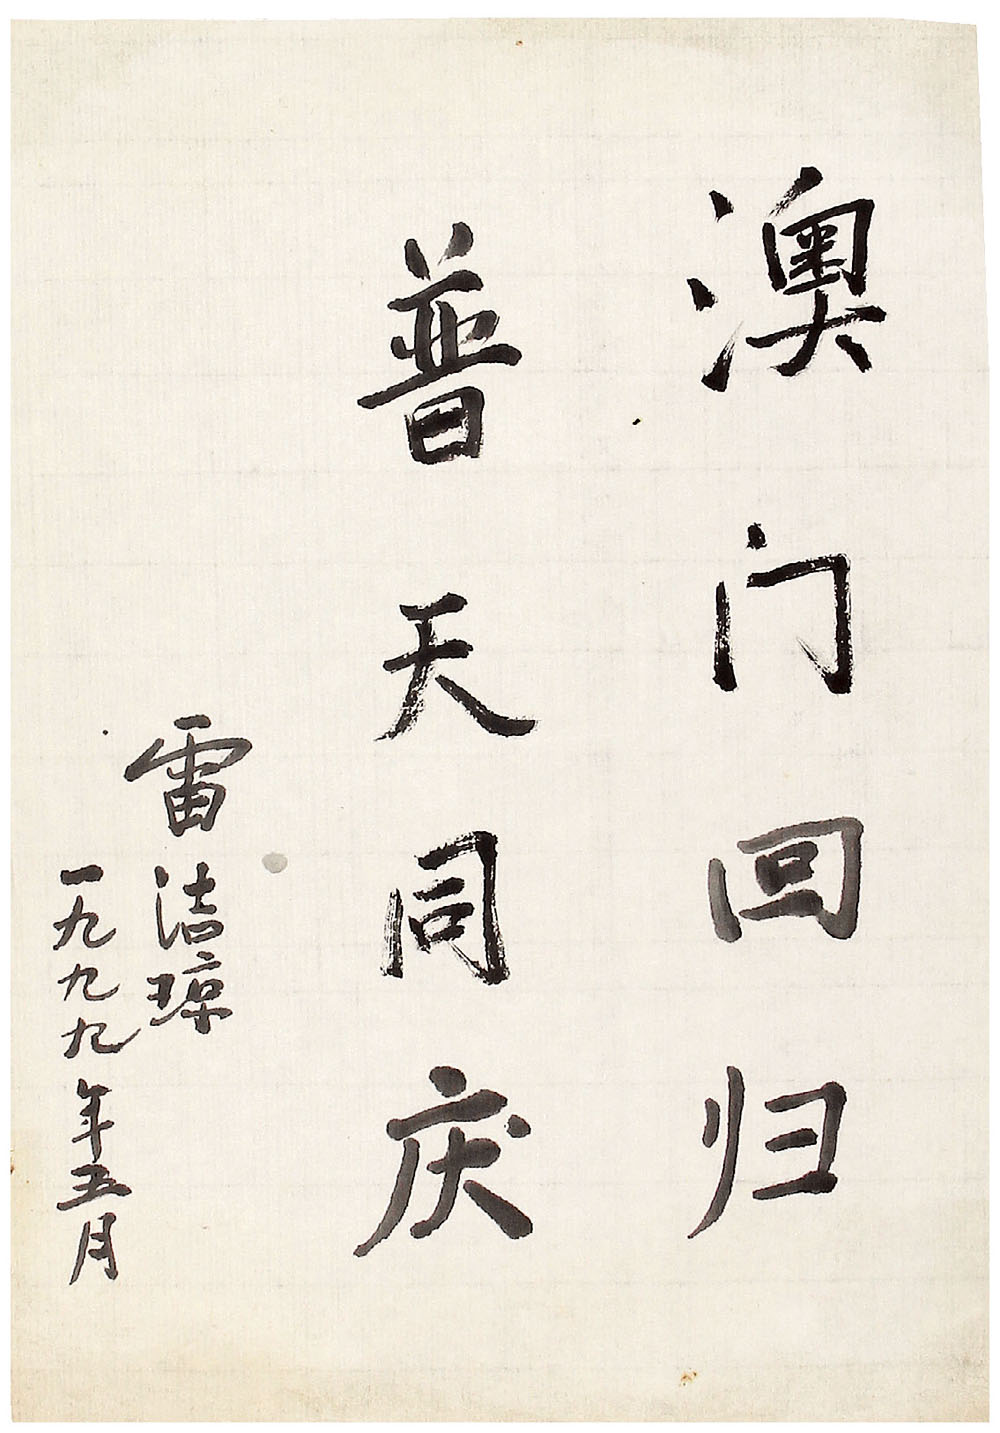 澳门回归
普天同庆
雷洁琼
一九九九年五月